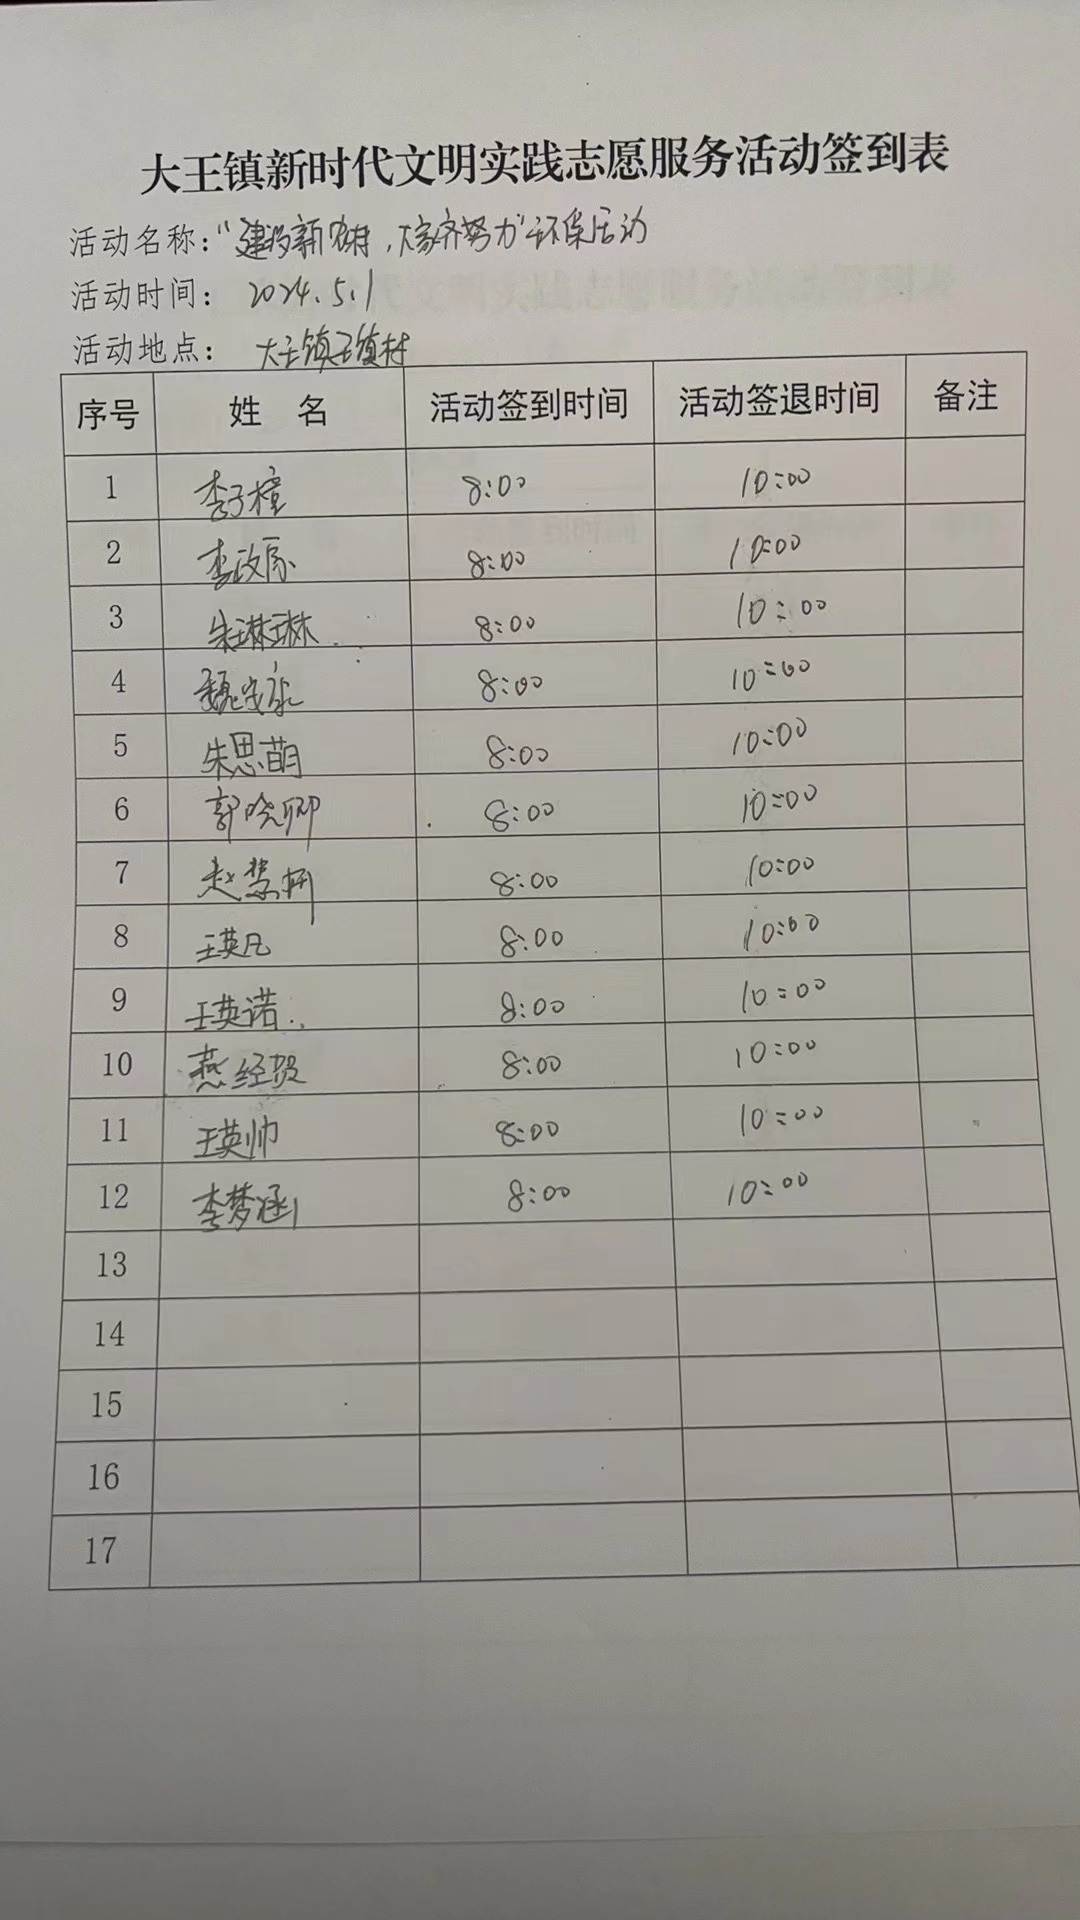 大王镇新时代文明实践志愿服务活动签到表
活动名称:“建设新农村,大家齐努力”环保活动
活动时间: 2024.5.1
活动地点: 大王镇王镇村
序号 姓 名 活动签到时间 活动签退时间 备注
1 李子檀 8:00 10:00
2 李政 8:00 10:00
3 朱琳琳 8:00 10:00
4 魏 8:00 10:00
5 朱思萌 8:00 10:00
6 郭晓卿 8:00 10:00
7 赵慧 8:00 10:00
8 王英凡 8:00 10:00
9 王英诺 8:00 10:00
10 燕经贺 8:00 10:00
11 王英帅 8:00 10:00
12 李梦涵 8:00 10:00
13
14
15
16
17